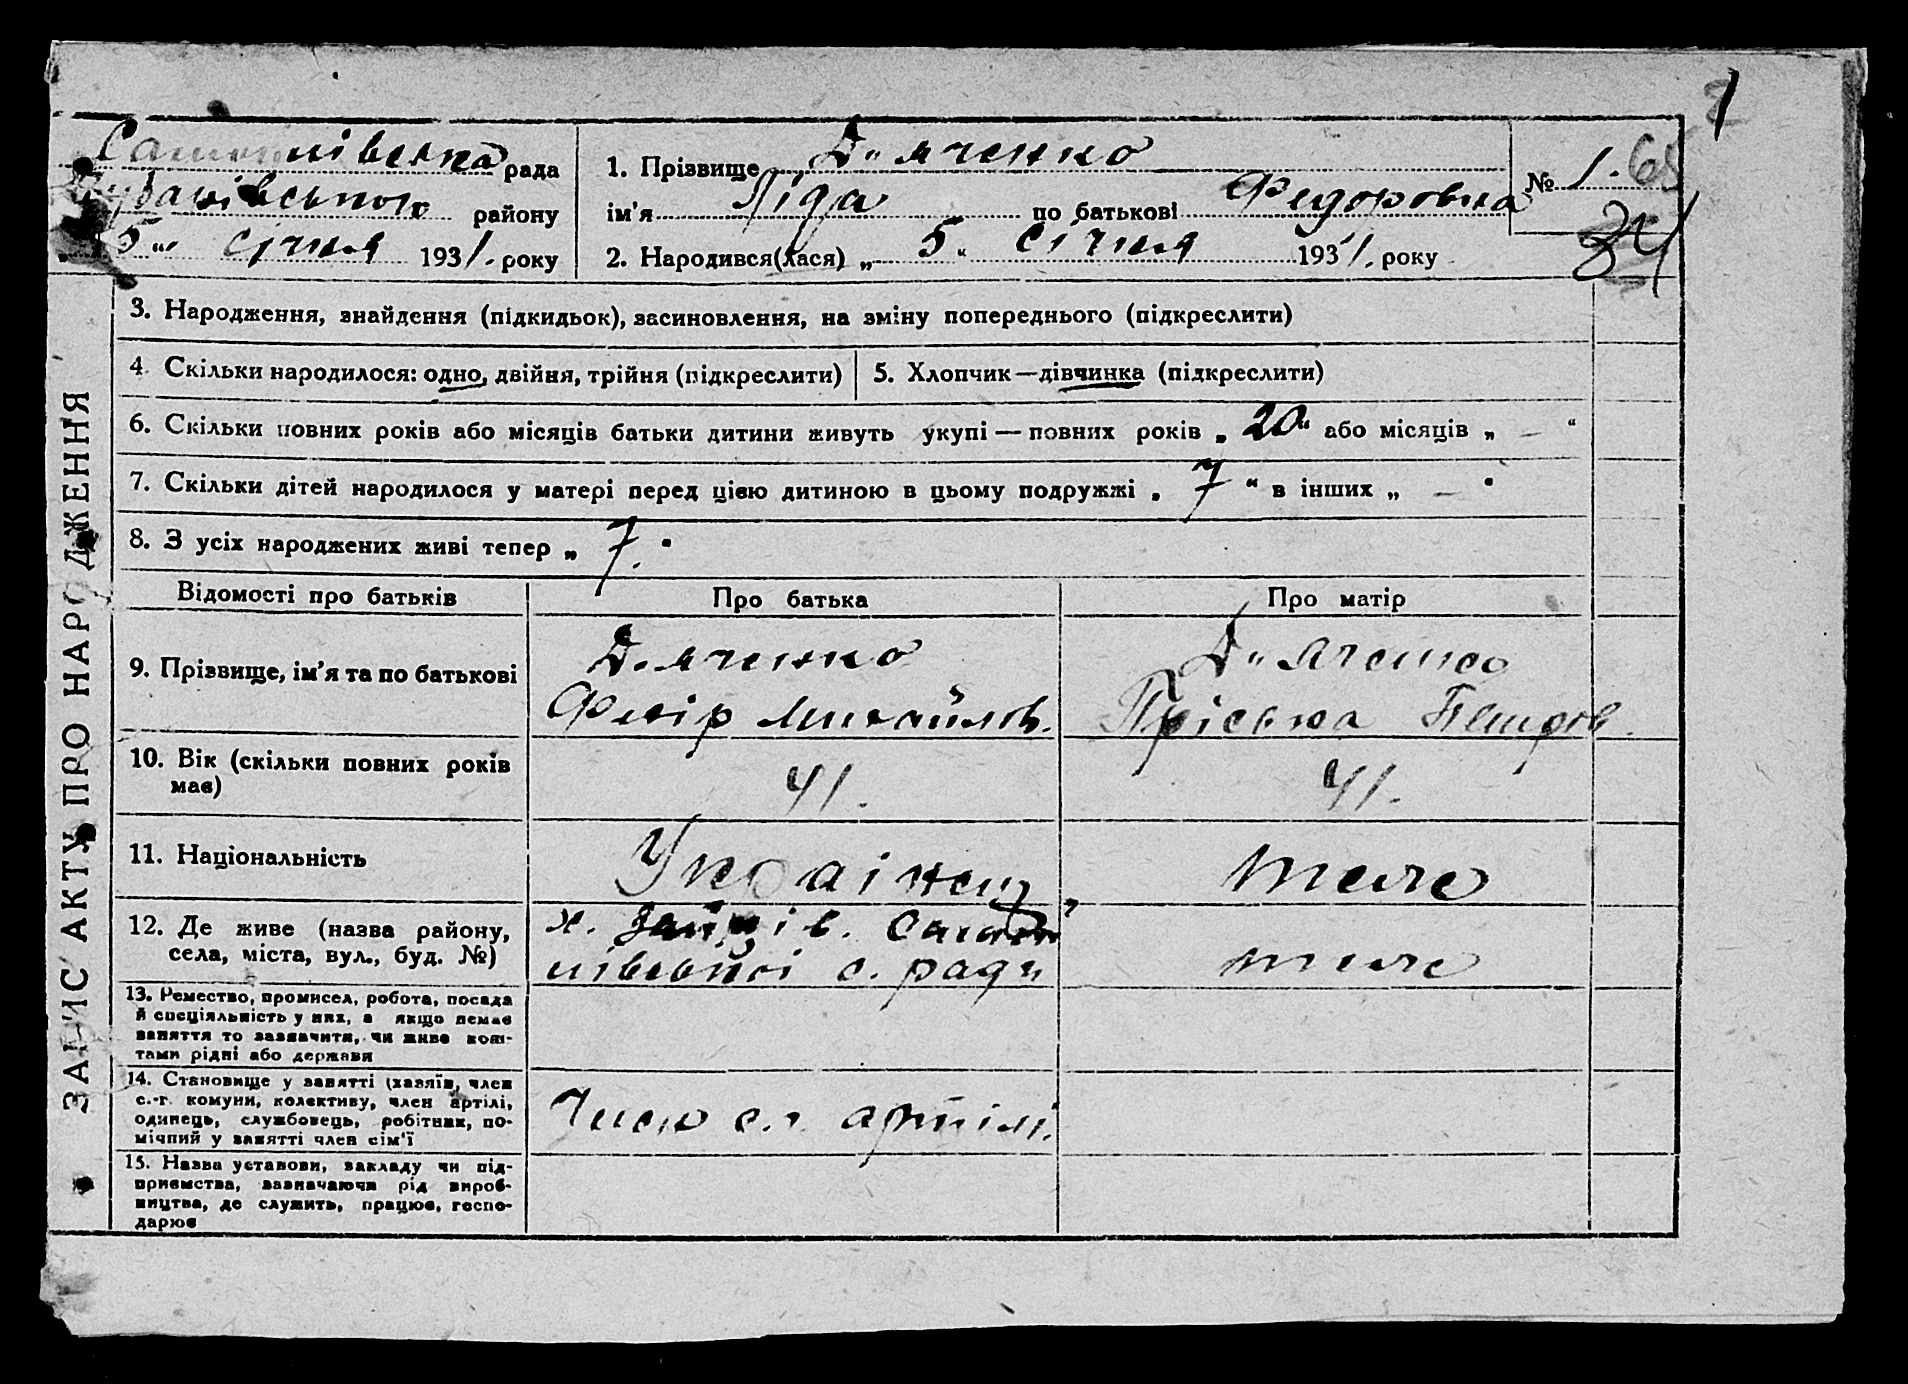 1
рада
1. Прізвище Д"яченко
№ 1.
району
ім'я Ліда по батькові Федоровна
34
5 " січня 1931. року
2. Народився(лася) „ 5 " січня 1931. року
ЗАПИС АКТУ ПРО НАРОДЖЕННЯ
3. Народження, знайдення (підкидьок), засиновлення, на зміну попереднього (підкреслити)
4. Скільки народилося: одно, двійня, трійня (підкреслити)
5. Хлопчик—дівчинка (підкреслити)
6. Скільки повних років або місяців батьки дитини живуть укупі — повних років „ 20 " або місяців „ — "
7. Скільки дітей народилося у матері перед цією дитиною в цьому подружжі „ 7 " в інших „ — "
8. З усіх народжених живі тепер „ 7. "
Відомості про батьків
Про батька
Про матір
9. Прізвище, ім'я та по батькові
Д.яченко
Михайлов.
Д"яченко
Пріська
10. Вік (скільки повних років
має)
41.
41.
11. Національність
Українец
теж
12. Де живе (назва району,
села, міста, вул., буд. №)
х.
с. ради
теж
13. Ремество, промисел, робота, посада
й спеціяльність у них, а якщо немає
заняття то зазначити, чи живе кош-
тами рідні або держави
14. Становище у занятті (хазяїн, член
с.-г. комуни, колективу, член артілі,
одинець, службовець, робітник, по-
мічний у занятті член сім'ї
с.г. артілі.
15. Назва установи, закладу чи під-
приємства, зазначаючи рід вироб-
ництва, де служить, працює, госпо-
дарює